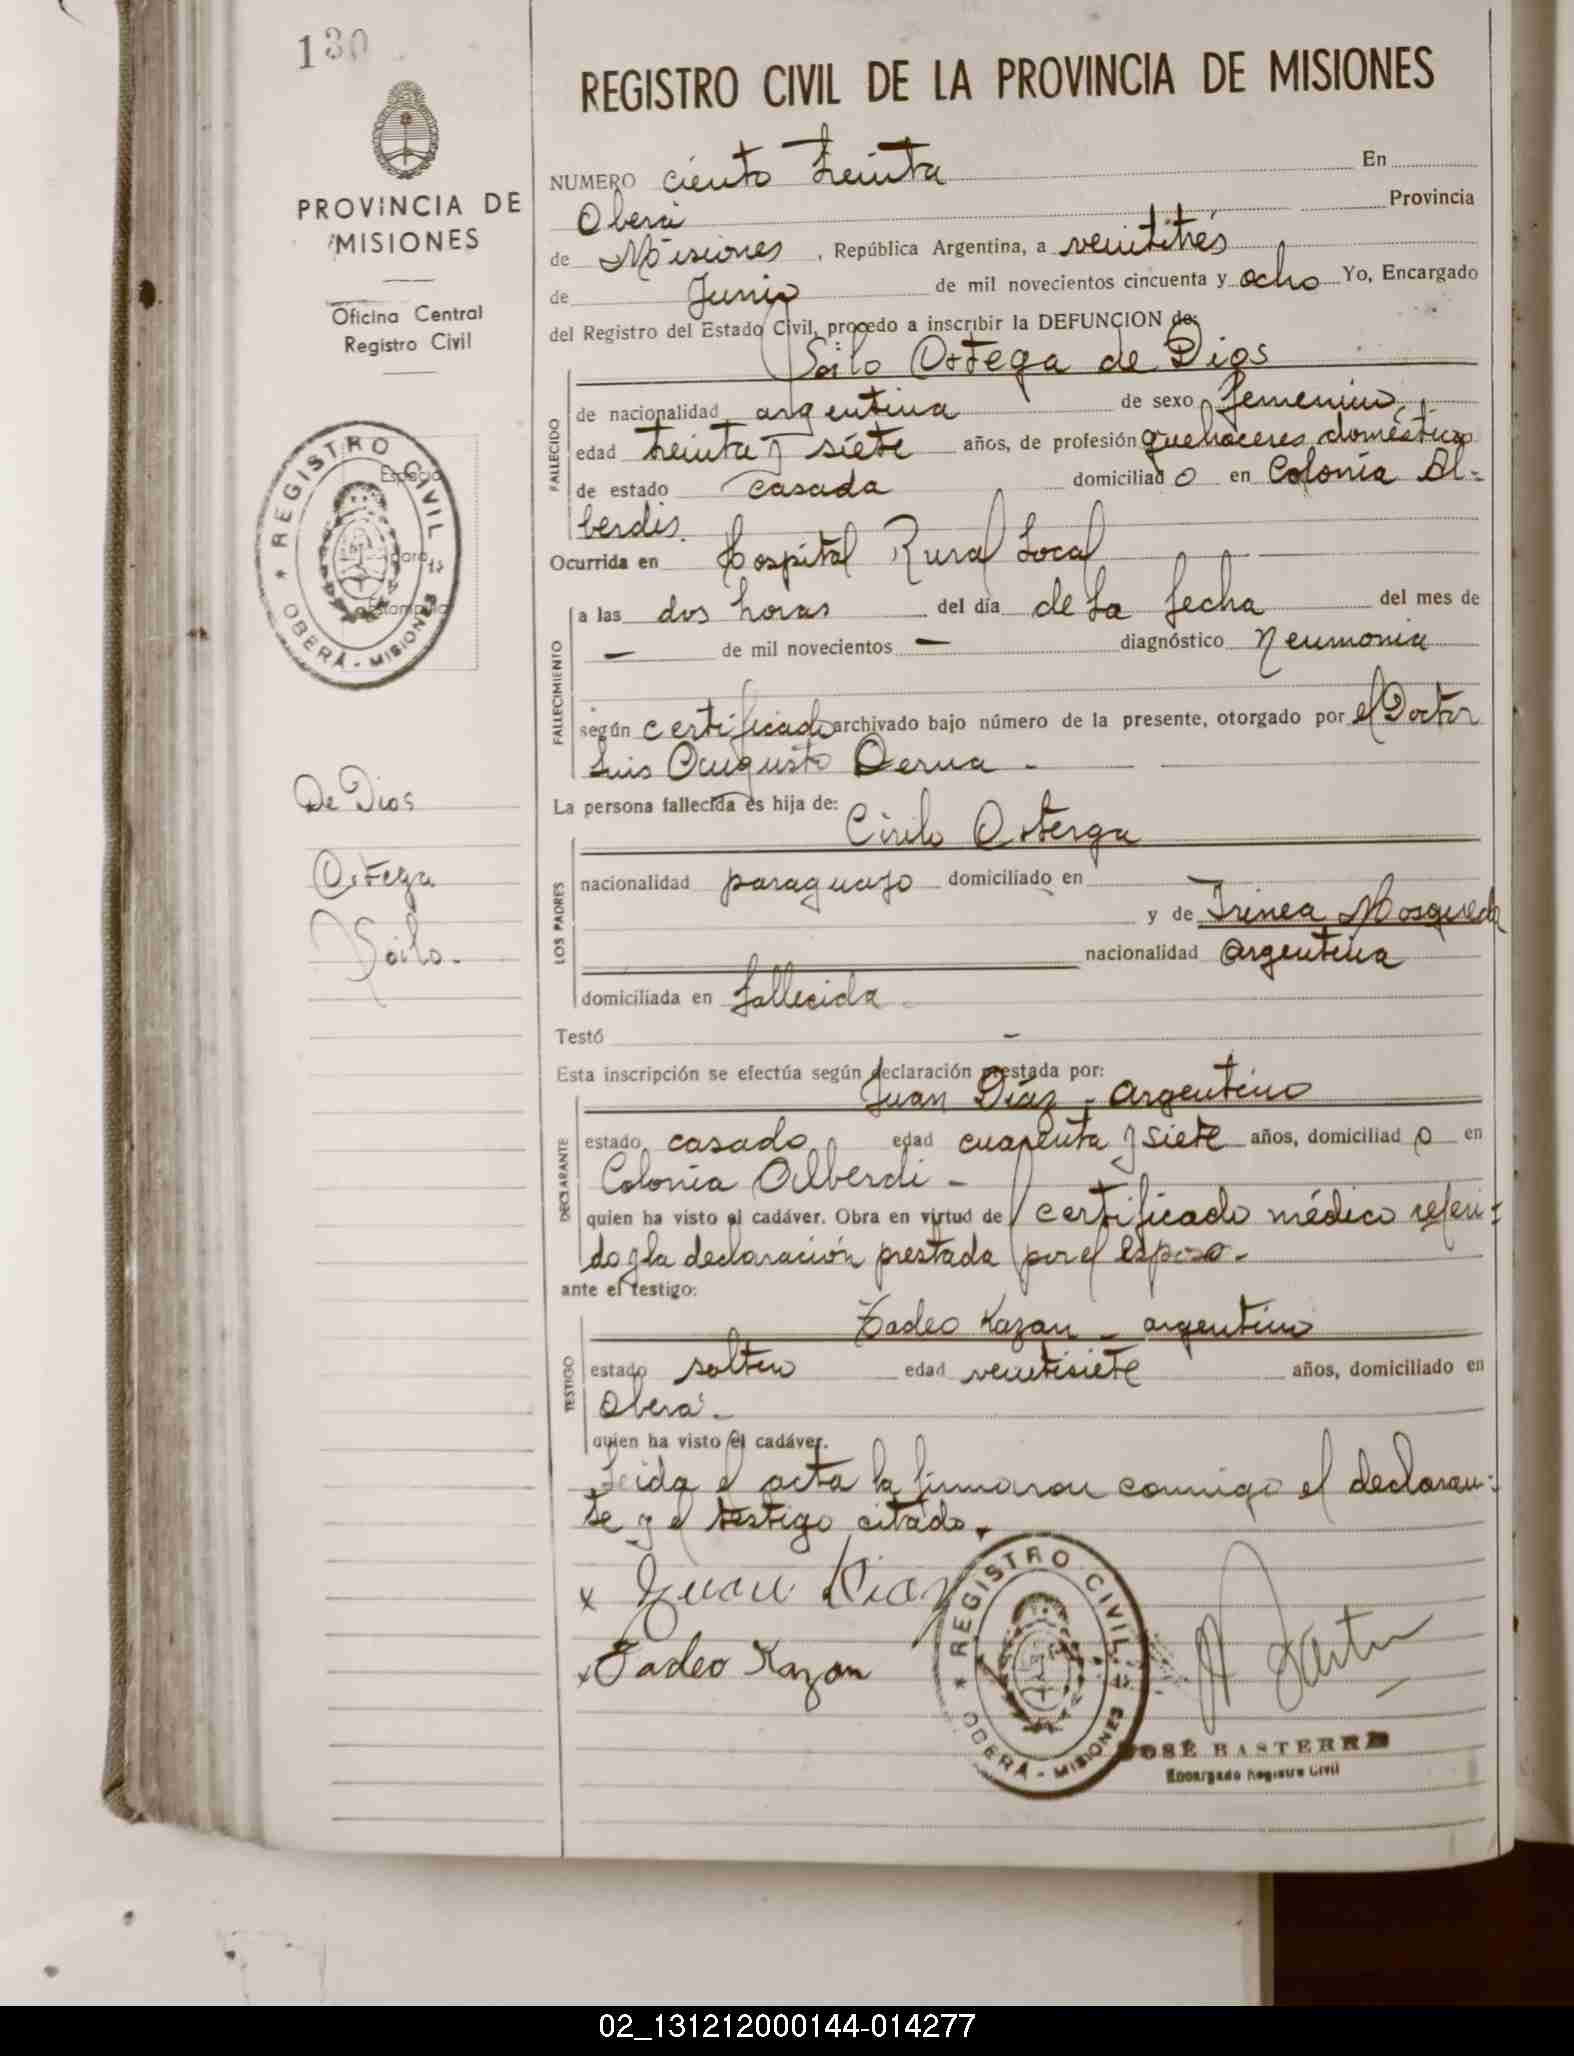 130
PROVINCIA DE
MISIONES
Oficina Central
Registro Civil
REGISTRO CIVIL
Espacio
para
Estampilla
OBERÁ - MISIONES
De Dios
Ortega
Soilo.-
REGISTRO CIVIL DE LA PROVINCIA DE MISIONES
NUMERO ciento treinta En
Oberá Provincia
de Misiones, República Argentina, a veintitrés
de Junio de mil novecientos cincuenta y ocho Yo, Encargado
del Registro del Estado Civil, procedo a inscribir la DEFUNCION de:
Soilo Ortega de Dios
FALLECIDO
de nacionalidad argentina de sexo femenino,
edad treinta y siete años, de profesión quehaceres domésticos
de estado casada domiciliado en Colonia Al=
berdi.
Ocurrida en Hospital Rural Local
FALLECIMIENTO
a las dos horas del día de la fecha del mes de
— de mil novecientos — diagnóstico Neumonia
según certificado archivado bajo número de la presente, otorgado por el Doctor
Luis Augusto Derna -
La persona fallecida es hija de:
Cirilo Orterga
LOS PADRES
nacionalidad paraguayo domiciliado en —
y de Irinea Mosqueda
nacionalidad argentina
domiciliada en fallecida -
Testó —
Esta inscripción se efectúa según declaración prestada por:
Juan Díaz - argentino
DECLARANTE
estado casado, edad cuarenta y siete años, domiciliado en
Colonia Alberdi -
quien ha visto el cadáver. Obra en virtud de certificado médico referi=
do y la declaración prestada por el esposo.-
ante el testigo:
Tadeo Kazan - argentino
TESTIGO
estado soltero edad veintisiete años, domiciliado en
Oberá.-
quien ha visto el cadáver.
Leida el acta la firmaron conmigo el declaran=
te y el testigo citado.
x Juan Diaz
x Tadeo Kazan
REGISTRO CIVIL
OBERÁ - MISIONES
JOSÉ BASTERRA
Encargado Registro Civil
02_131212000144-014277